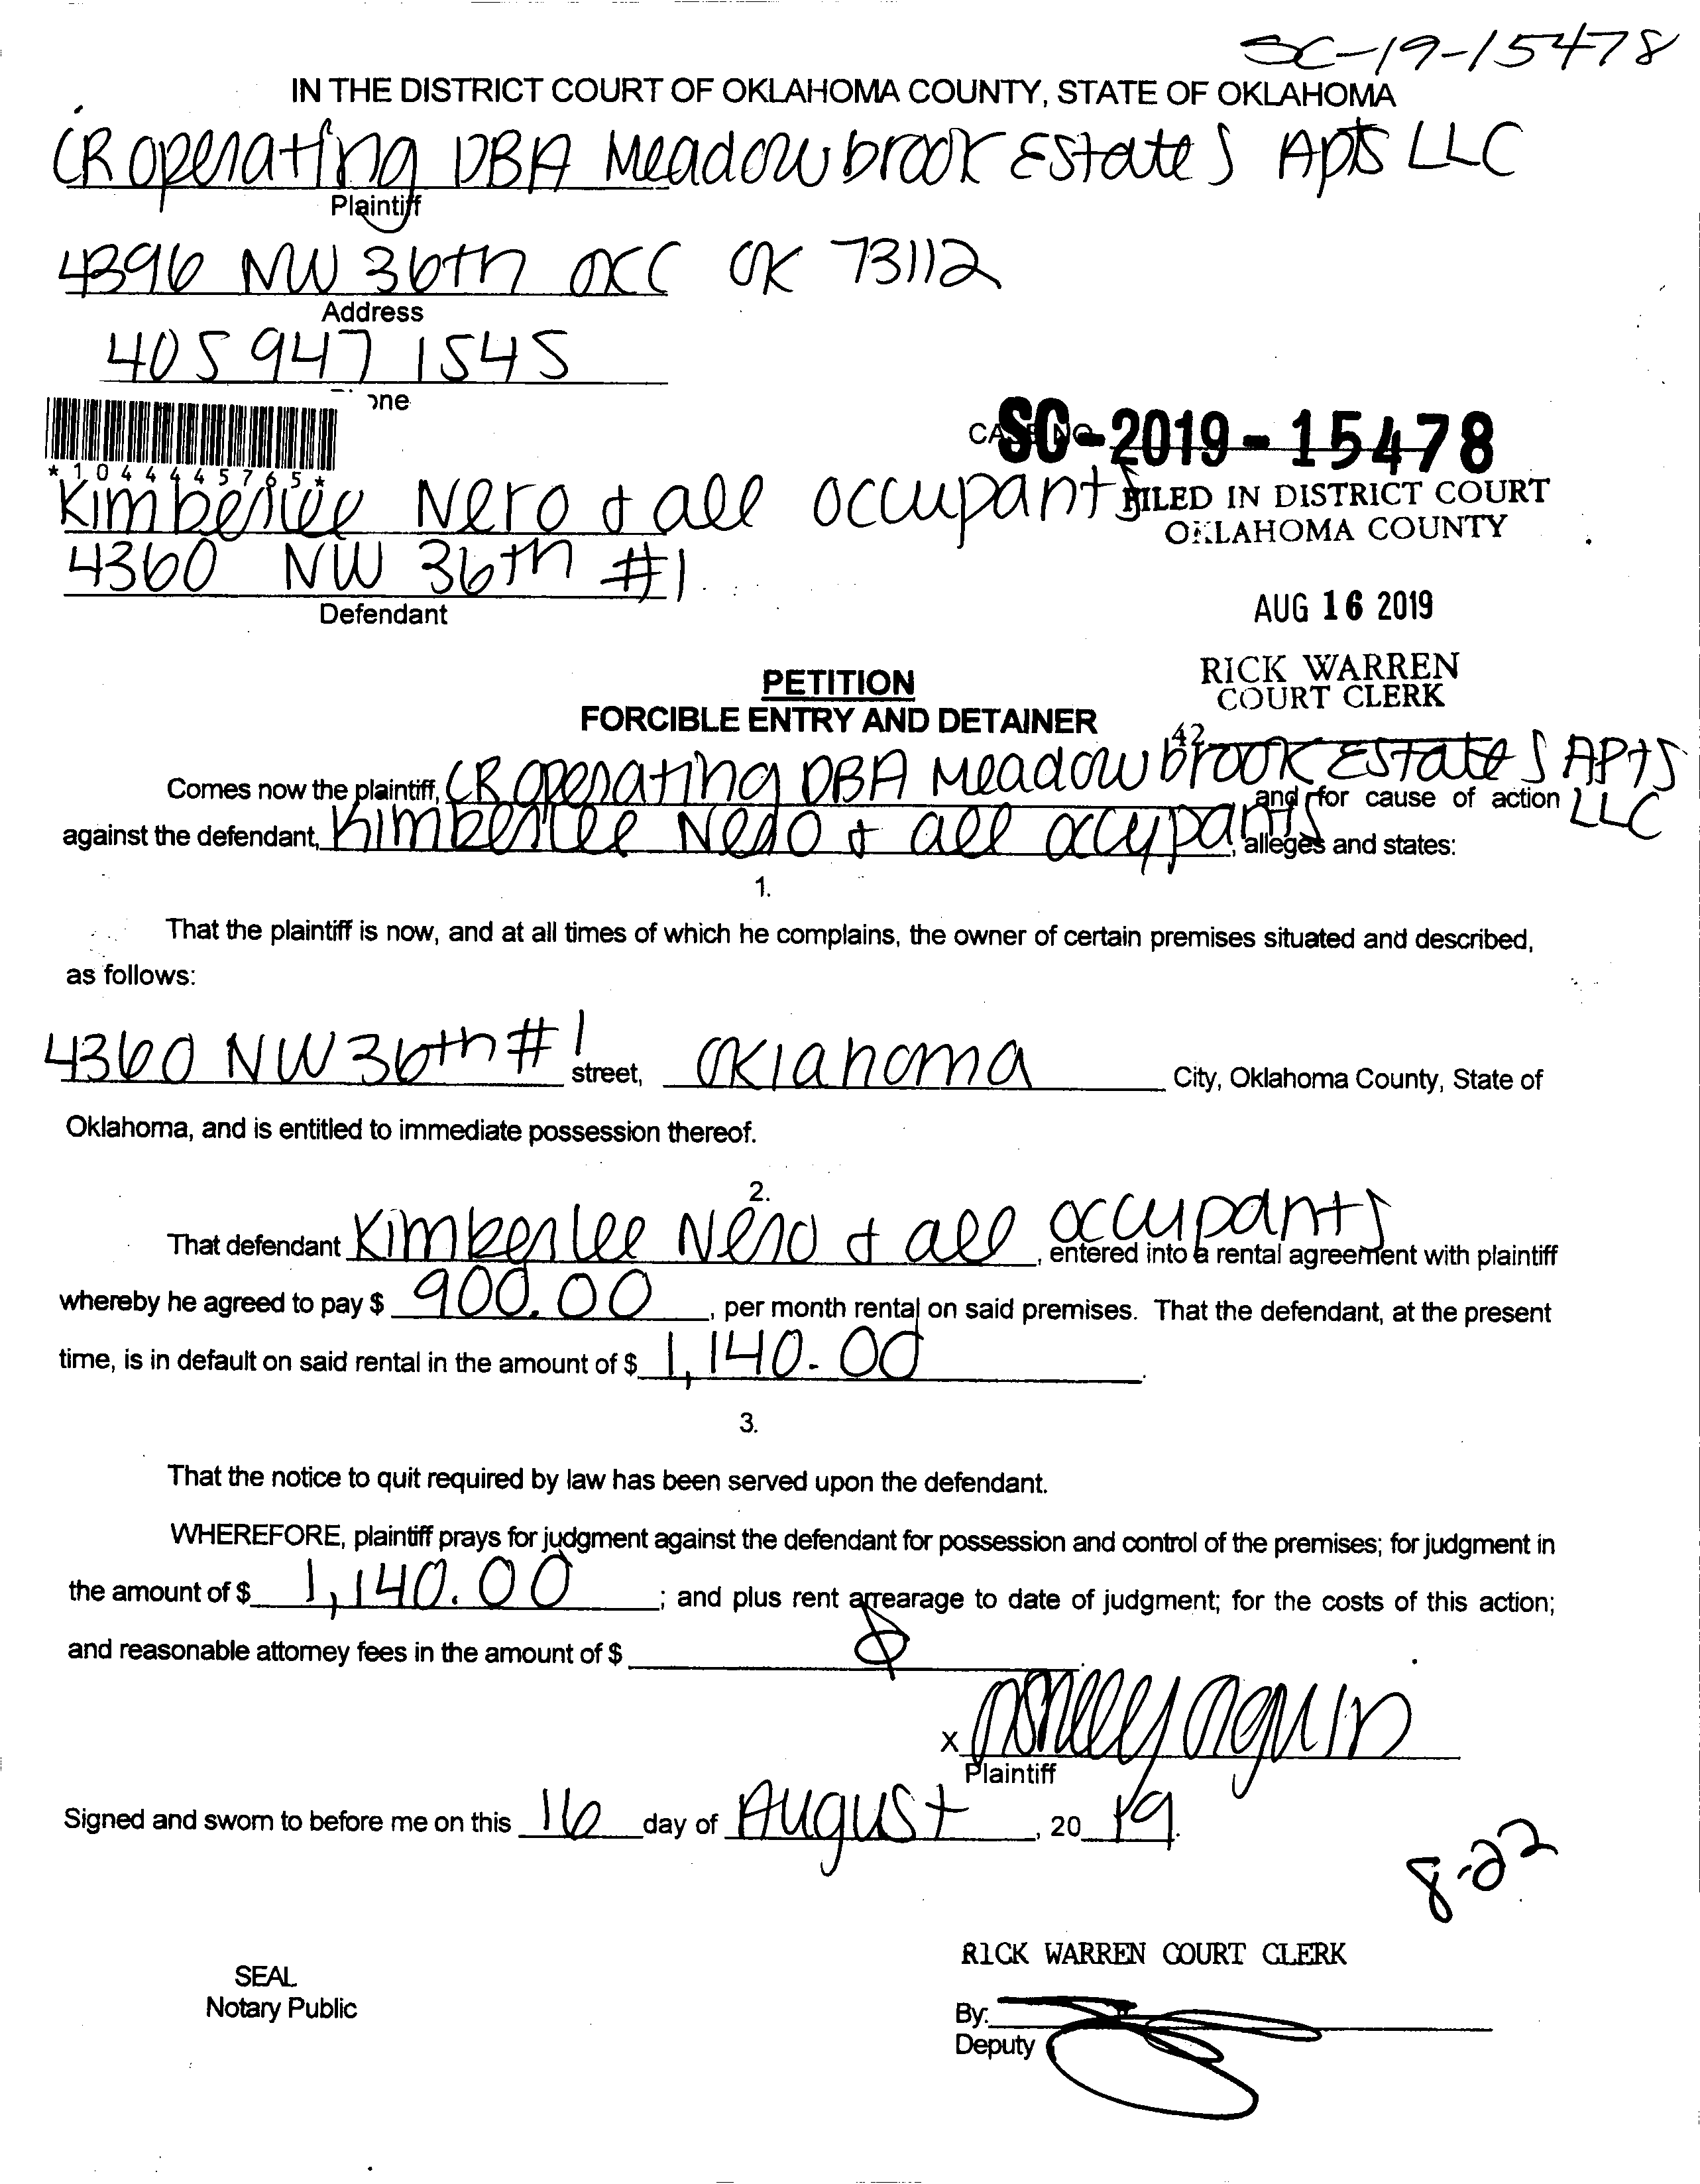 SC-19-15478
IN THE DISTRICT COURT OF OKLAHOMA COUNTY, STATE OF OKLAHOMA
CR Operating DBA Meadowbrook Estates Apts LLC
Plaintiff
4396 NW 36th OKC OK 73112
Address
405 947 1545
one
CASE NO. SC-2019-15478
*1044445765*
Kimberlee Nero + all occupants
FILED IN DISTRICT COURT
OKLAHOMA COUNTY
4360 NW 36th #1
Defendant
AUG 16 2019
RICK WARREN
COURT CLERK
PETITION
FORCIBLE ENTRY AND DETAINER
42
Comes now the plaintiff, CR Operating DBA Meadowbrook Estates Apts LLC and for cause of action
against the defendant, Kimberlee Nero + all occupants, alleges and states:
1.
That the plaintiff is now, and at all times of which he complains, the owner of certain premises situated and described,
as follows:
4360 NW 36th #1 street, Oklahoma City, Oklahoma County, State of
Oklahoma, and is entitled to immediate possession thereof.
2.
That defendant Kimberlee Nero + all occupants, entered into a rental agreement with plaintiff
whereby he agreed to pay $ 900.00, per month rental on said premises. That the defendant, at the present
time, is in default on said rental in the amount of $ 1,140.00.
3.
That the notice to quit required by law has been served upon the defendant.
WHEREFORE, plaintiff prays for judgment against the defendant for possession and control of the premises; for judgment in
the amount of $ 1,140.00; and plus rent arrearage to date of judgment; for the costs of this action;
and reasonable attorney fees in the amount of $ Ø.
X
Plaintiff
Signed and sworn to before me on this 16 day of August, 2019.
8-22
RICK WARREN COURT CLERK
SEAL
Notary Public
By:
Deputy